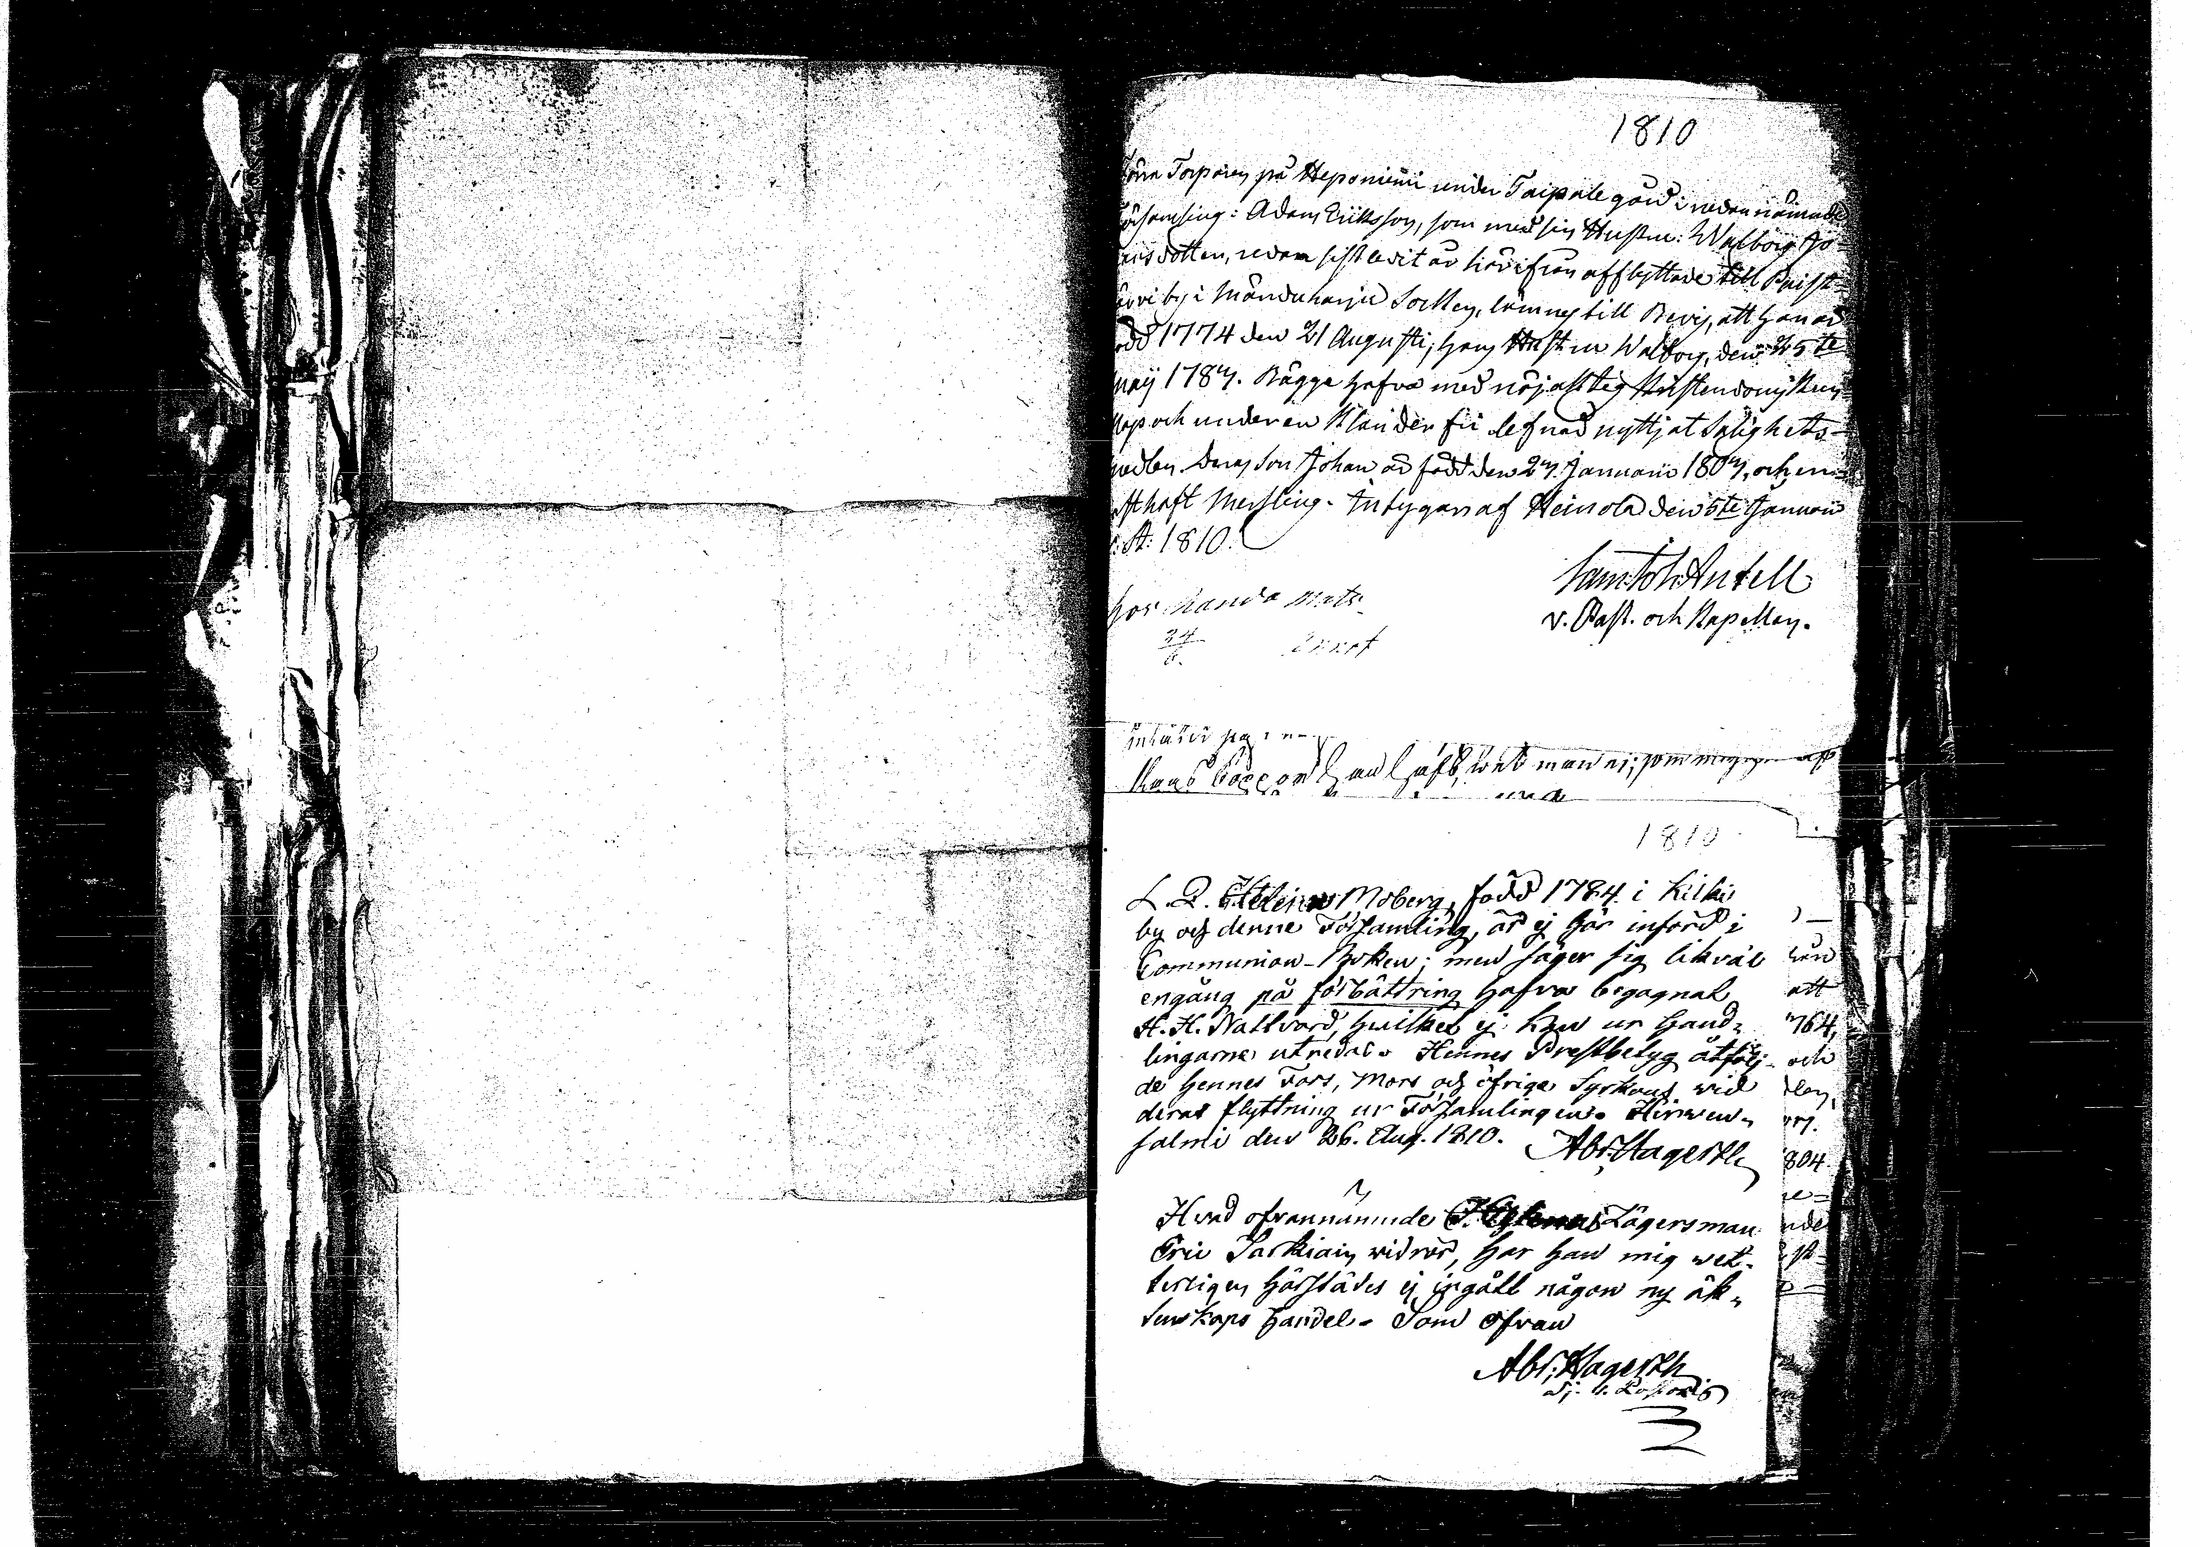 1810
Torparen på Heponiemi under Taipale gård i nedannämnde
Församling: Adam Eriksson, som med sin Hustru: Walborg Jo-
dotter, redan sistledit år härifrån afflyttade till Ruist-
järvi by i Mänduharju Sockn, lämnas till Bevis, att han är
född 1774 den 21 Augusti; hans Hustru Walborg, den 25te
Maij 1787. Bägge hafva med nöjaktig Kristendoms Kun-
skap och under en Klanderfri lefnad nyttjat Salighets-
medlen. Deras Son Johan är född den 27 Januarii 1807, och
haft Messling. Intygar af Heinola den 5te Januarii
A: 1810.
Sam: Joh: Antell
v. Past. och Kapellan.
hos Mats
24
6.
han man ej; som
1810
L. D. Helena Moberg, född 1784. i Kiskis
by och denne Församling, är ej här införd i
Communion-Boken; men säger sig likväl
engång på förbättring hafva begagnat
H. H. Nattvard, hvilket ej kan ur hand-
lingarne utredas. Hennes Prestbetyg åtfölj-
de hennes Fars, Mors och öfriga Syskons wid
deras flyttning ur Församlingen. Hirwen-
salmi den 26. Aug. 1810. Abr. Hagerth
Hvad ofvannämnde Lägersman
Eric Parkiain widrör, har han mig wet-
terligen härstädes ej ingått någon ny äk-
tenskaps handel. Som ofvan
Abr. Hagerth
hän
att
764,
och
804